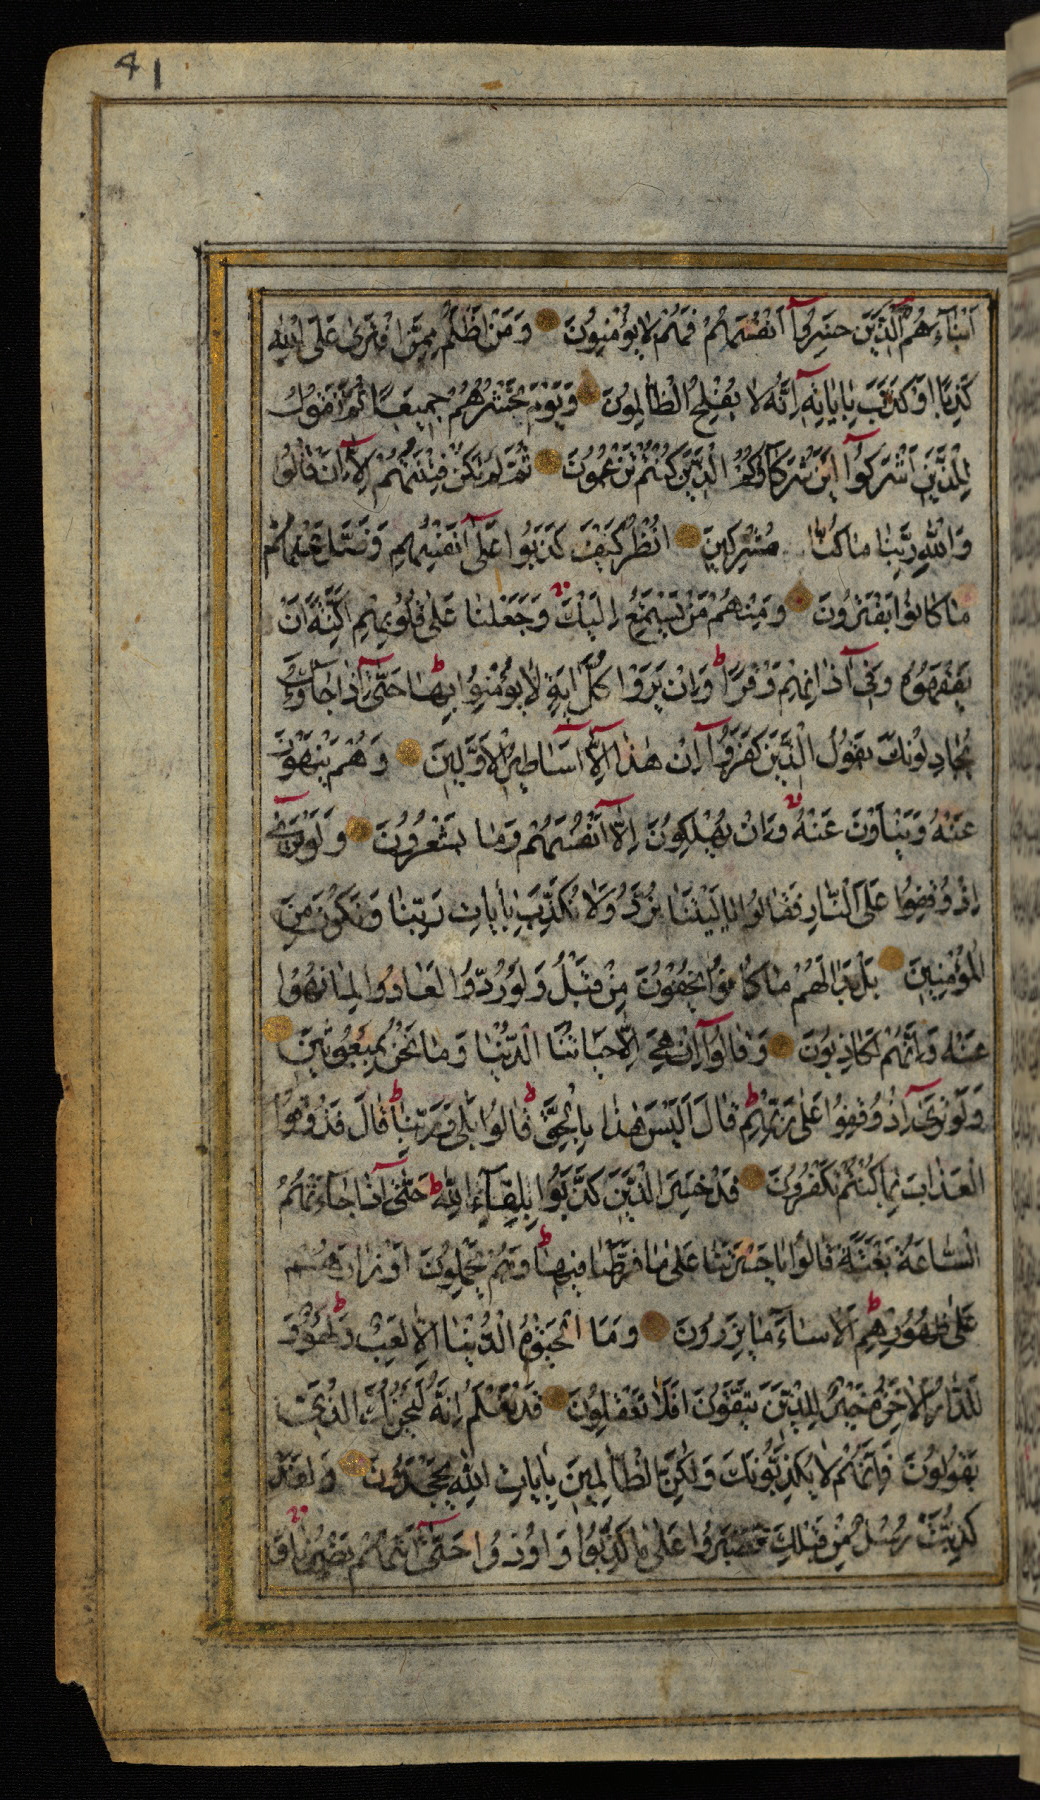 41
اَبْنَآءَهُمْ اَلَّذِيْنَ خَسِرُوْٓا اَنْفُسَهُمْ فَهُمْ لَا يُؤْمِنُوْنَ وَمَنْ اَظْلَمُ مِمَّنِ افْتَرٰى عَلَى اللّٰهِ
كَذِبًا اَوْ كَذَّبَ بِاٰيَاتِهٖٓ اِنَّهٗ لَا يُفْلِحُ الظَّالِمُوْنَ وَيَوْمَ نَحْشُرُهُمْ جَمِيْعًا ثُمَّ نَقُوْلُ
لِلَّذِيْنَ اَشْرَكُوْٓا اَيْنَ شُرَكَآؤُكُمُ الَّذِيْنَ كُنْتُمْ تَزْعُمُوْنَ ثُمَّ لَمْ تَكُنْ فِتْنَتُهُمْ اِلَّآ اَنْ قَالُوْا
وَاللّٰهِ رَبِّنَا مَا كُنَّا مُشْرِكِيْنَ اُنْظُرْ كَيْفَ كَذَبُوْا عَلٰٓى اَنْفُسِهِمْ وَضَلَّ عَنْهُمْ
مَا كَانُوْا يَفْتَرُوْنَ وَمِنْهُمْ مَنْ يَسْتَمِعُ اِلَيْكَ وَجَعَلْنَا عَلٰى قُلُوْبِهِمْ اَكِنَّةً اَنْ
يَفْقَهُوْهُ وَفِيْٓ اٰذَانِهِمْ وَقْرًا ط وَاِنْ يَرَوْا كُلَّ اٰيَةٍ لَا يُؤْمِنُوْا بِهَا ط حَتّٰٓى اِذَا جَآؤُكَ
يُجَادِلُوْنَكَ يَقُوْلُ الَّذِيْنَ كَفَرُوْٓا اِنْ هٰذَآ اِلَّآ اَسَاطِيْرُ الْاَوَّلِيْنَ وَهُمْ يَنْهَوْنَ
عَنْهُ وَيَنْاَوْنَ عَنْهُ وَاِنْ يُهْلِكُوْنَ اِلَّآ اَنْفُسَهُمْ وَمَا يَشْعُرُوْنَ وَلَوْ تَرٰٓى
اِذْ وُقِفُوْا عَلَى النَّارِ فَقَالُوْا يَا لَيْتَنَا نُرَدُّ وَلَا نُكَذِّبَ بِاٰيَاتِ رَبِّنَا وَنَكُوْنَ مِنَ
الْمُؤْمِنِيْنَ بَلْ بَدَا لَهُمْ مَا كَانُوْا يُخْفُوْنَ مِنْ قَبْلُ وَلَوْ رُدُّوْا لَعَادُوْا لِمَا نُهُوْا
عَنْهُ وَاِنَّهُمْ لَكَاذِبُوْنَ وَقَالُوْٓا اِنْ هِيَ اِلَّا حَيَاتُنَا الدُّنْيَا وَمَا نَحْنُ بِمَبْعُوْثِيْنَ
وَلَوْ تَرٰٓى اِذْ وُقِفُوْا عَلٰى رَبِّهِمْ ط قَالَ اَلَيْسَ هٰذَا بِالْحَقِّ ط قَالُوْا بَلٰى وَرَبِّنَا ط قَالَ فَذُوْقُوْا
الْعَذَابَ بِمَا كُنْتُمْ تَكْفُرُوْنَ قَدْ خَسِرَ الَّذِيْنَ كَذَّبُوْا بِلِقَآءِ اللّٰهِ ط حَتّٰٓى اِذَا جَآءَتْهُمُ
السَّاعَةُ بَغْتَةً قَالُوْا يَا حَسْرَتَنَا عَلٰى مَا فَرَّطْنَا فِيْهَا ط وَهُمْ يَحْمِلُوْنَ اَوْزَارَهُمْ
عَلٰى ظُهُوْرِهِمْ ط اَلَا سَآءَ مَا يَزِرُوْنَ وَمَا الْحَيٰوةُ الدُّنْيَا اِلَّا لَعِبٌ وَلَهْوٌ ط وَ
لَلدَّارُ الْاٰخِرَةُ خَيْرٌ لِلَّذِيْنَ يَتَّقُوْنَ اَفَلَا تَعْقِلُوْنَ قَدْ نَعْلَمُ اِنَّهٗ لَيَحْزُنُكَ الَّذِيْ
يَقُوْلُوْنَ فَاِنَّهُمْ لَا يُكَذِّبُوْنَكَ وَلٰكِنَّ الظَّالِمِيْنَ بِاٰيَاتِ اللّٰهِ يَجْحَدُوْنَ وَلَقَدْ
كُذِّبَتْ رُسُلٌ مِنْ قَبْلِكَ فَصَبَرُوْا عَلٰى مَا كُذِّبُوْا وَاُوْذُوْا حَتّٰٓى اَتٰهُمْ نَصْرُنَا وَ